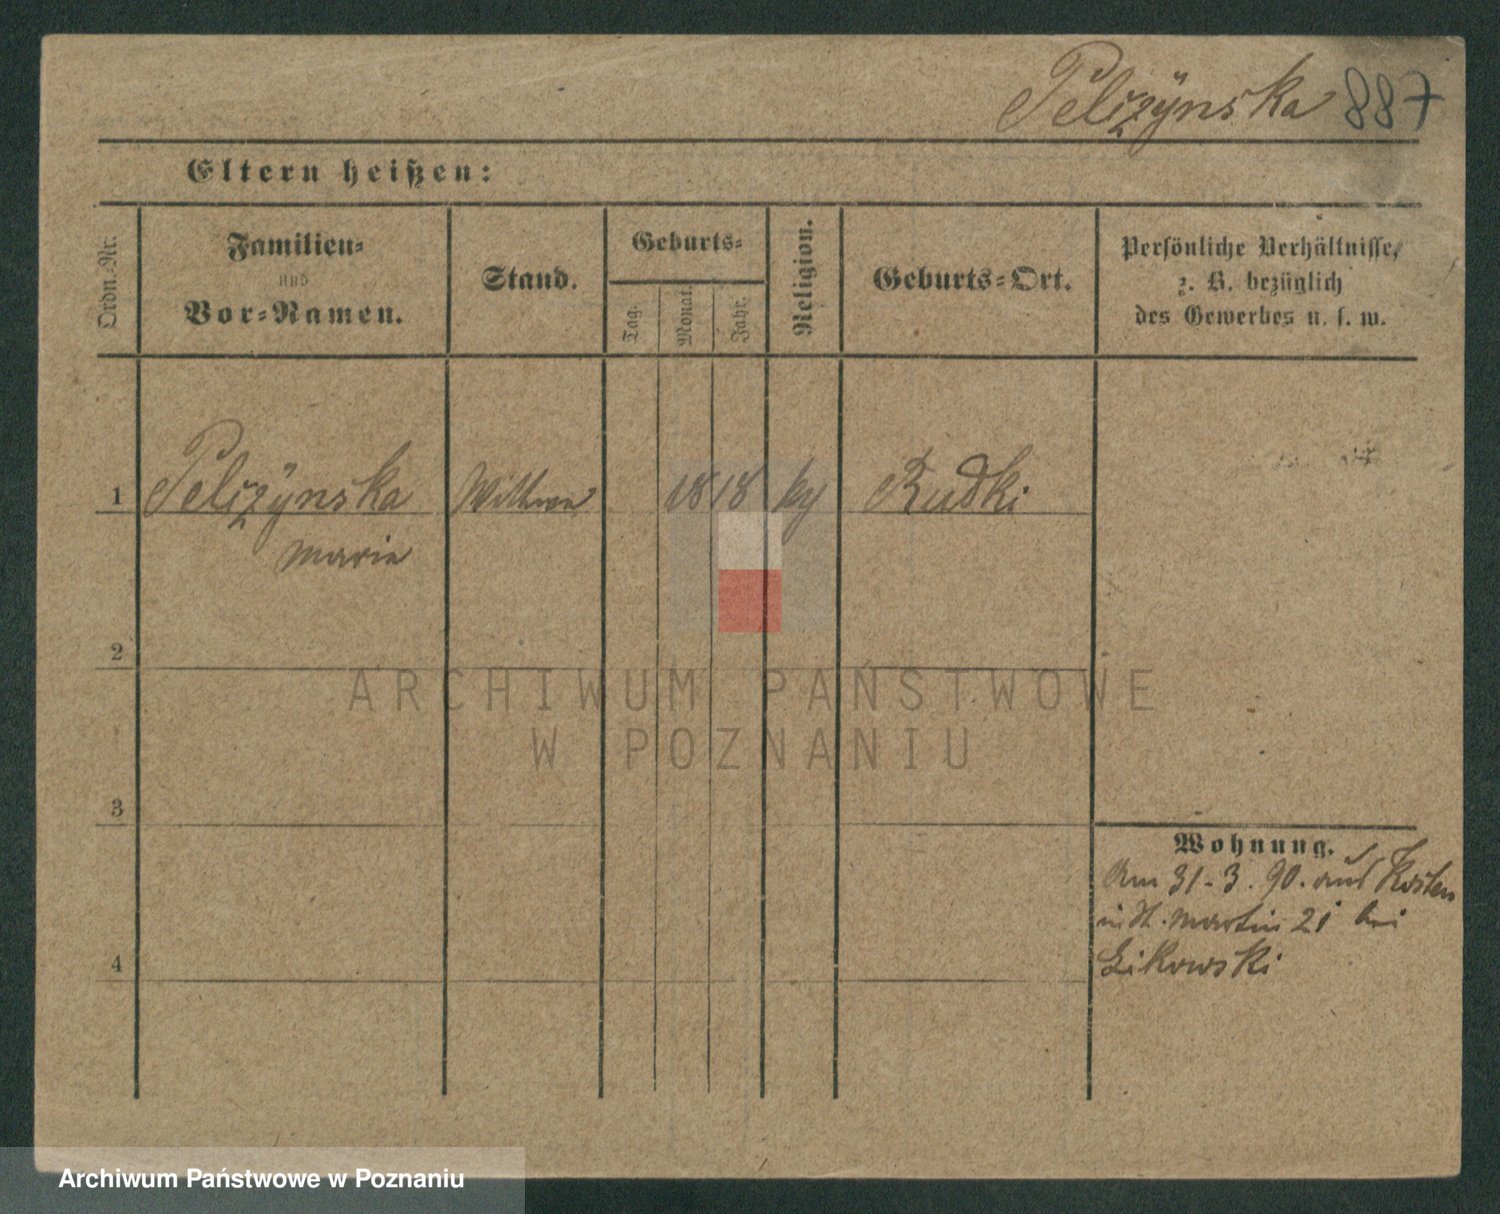 Pelczÿnska 887
Eltern heißen:
Ordn.-Nr.
Familien-
und
Vor-Namen.
Stand.
Geburts-
Tag.
Monat.
Jahr.
Religion.
Geburts-Ort.
Persönliche Verhältnisse,
z. B. bezüglich
des Gewerbes u. s. w.
1 Pelczÿnska Wittwe 1818 Rudki
Marie
2
ARCHIWUM PAŃSTWOWE
W POZNANIU
3
Wohnung.
Am 31.3.90. aus Kosten
in St. Martin 21 bei
Likowski
4
Archiwum Państwowe w Poznaniu